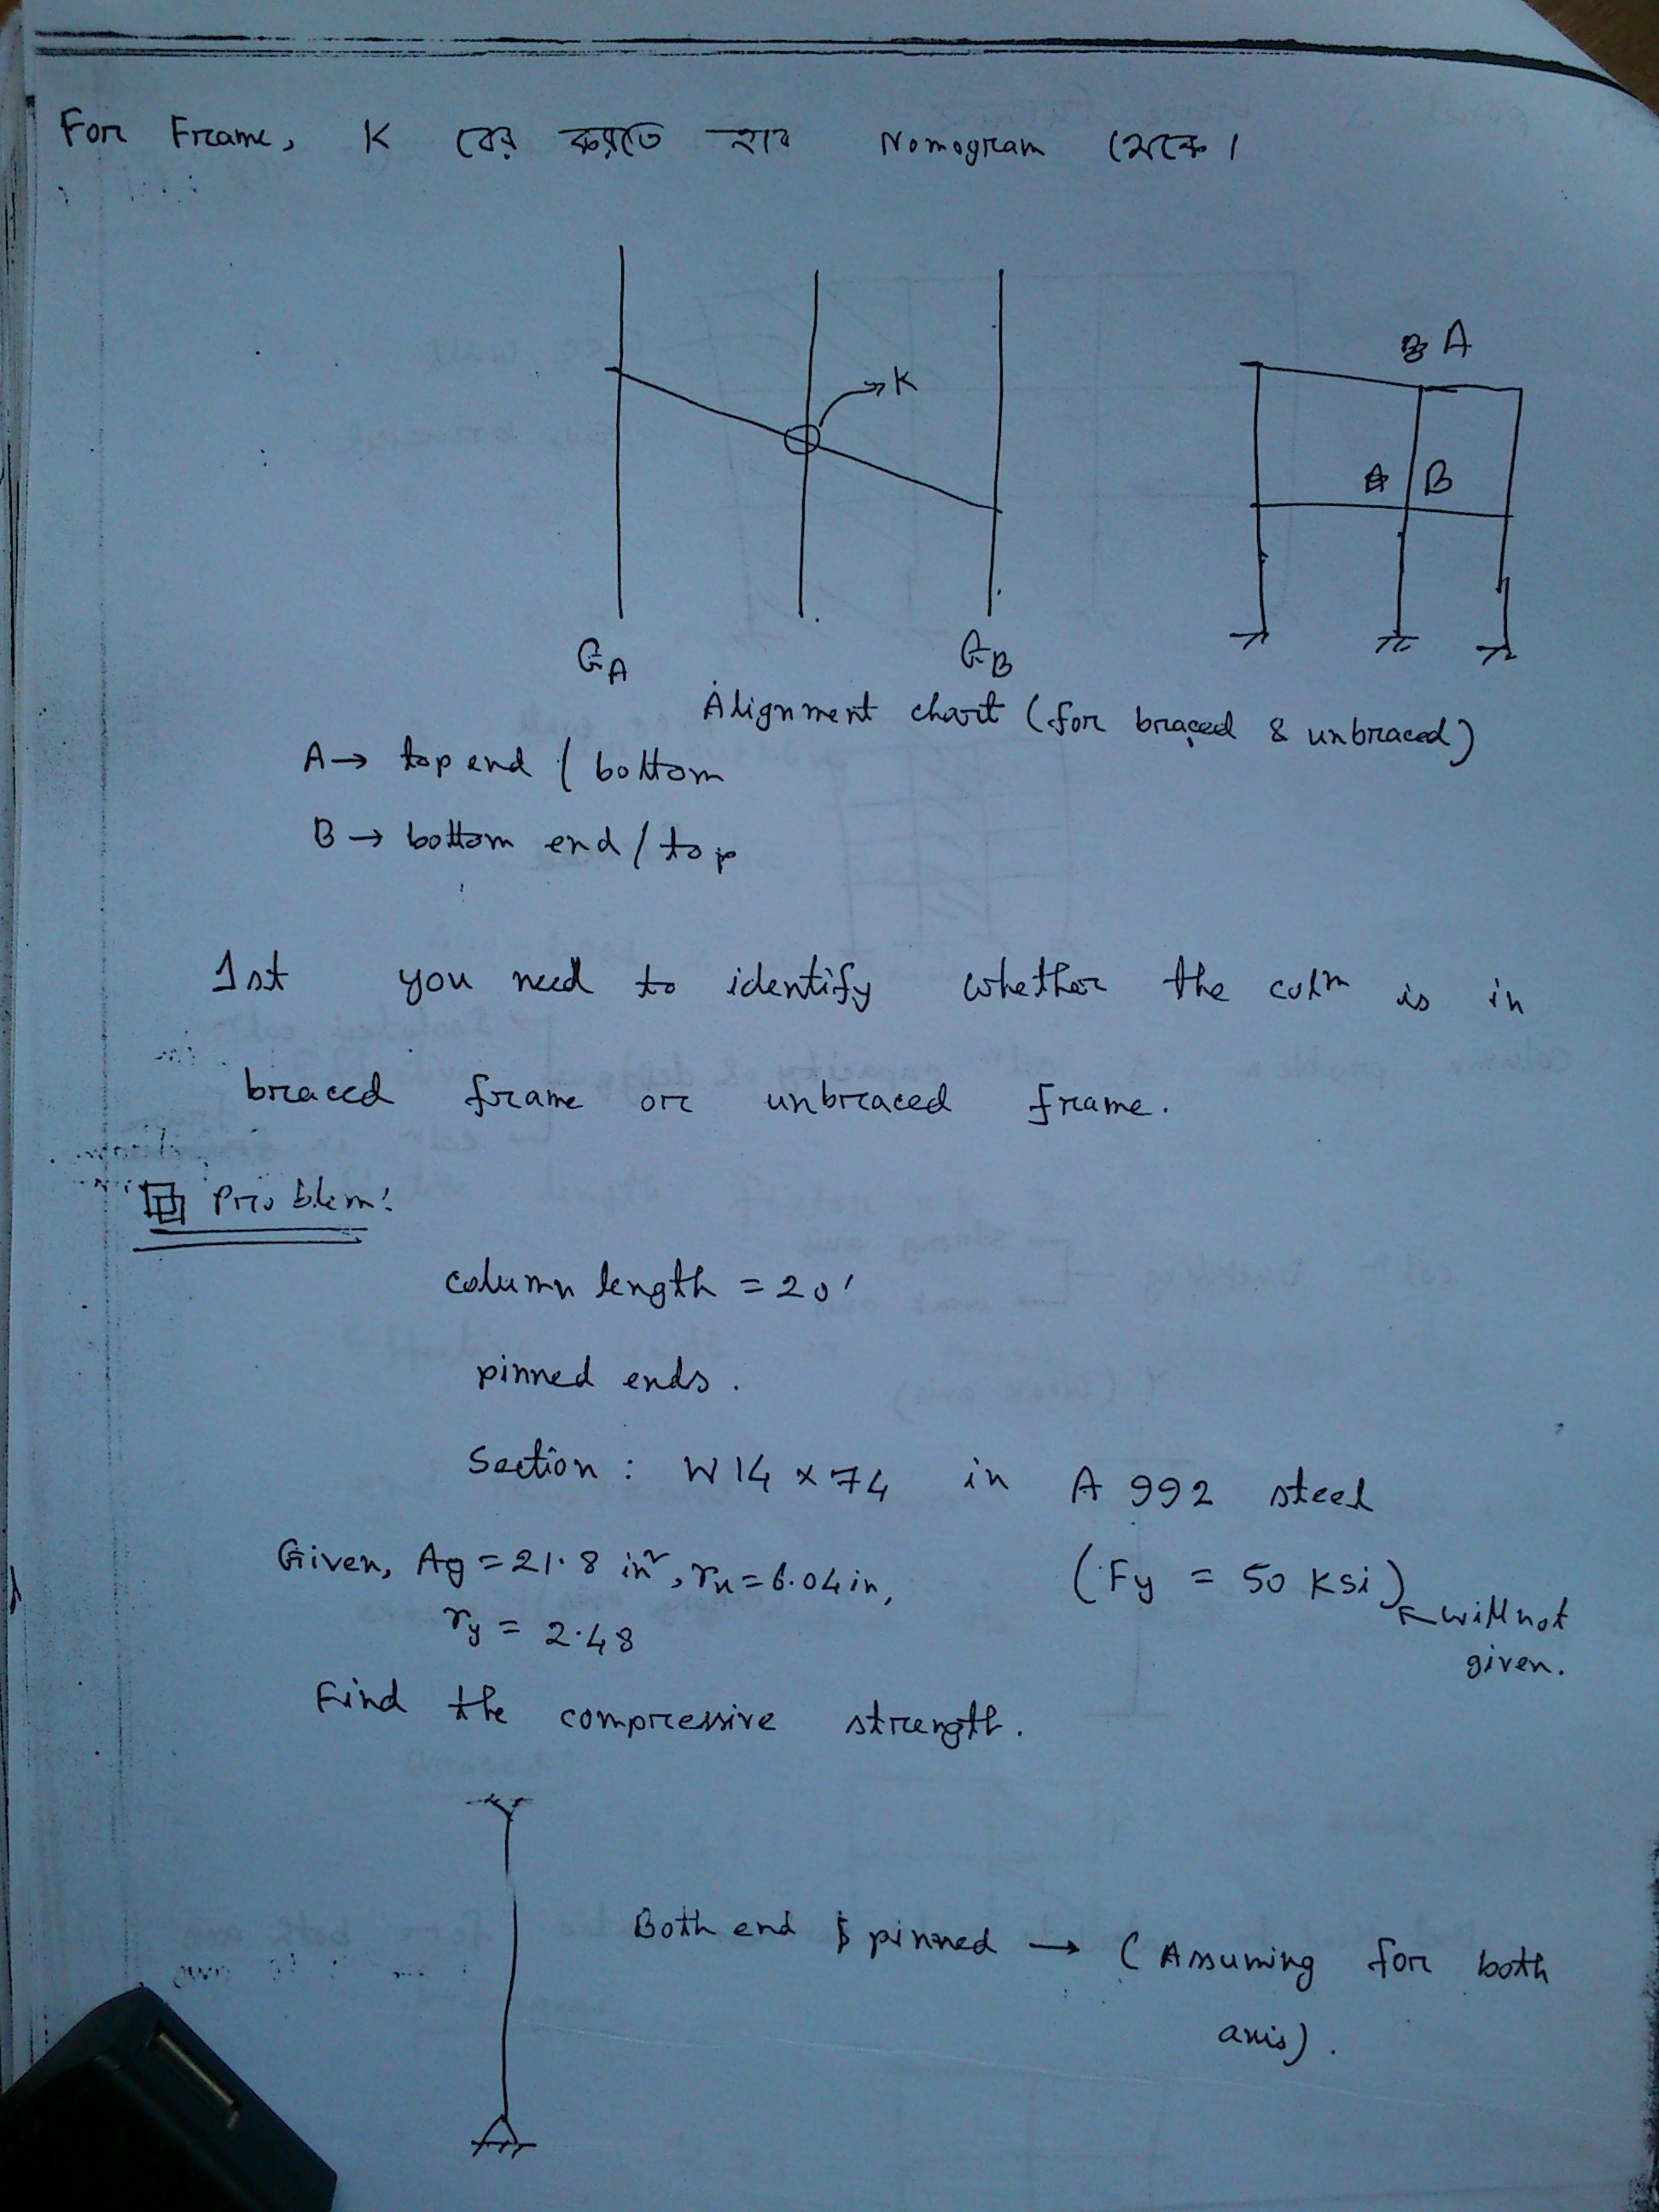 For Frame, K বের করতে হবে Nomogram থেকে।
K
A
B
G_A
G_B
Alignment chart (for braced & unbraced)
A → top end / bottom
B → bottom end / top
1st you need to identify whether the colm is in
braced frame or unbraced frame.
Problem:
column length = 20'
pinned ends.
Section: W14 x 74 in A 992 steel
Given, Ag = 21.8 in², rx = 6.04 in,
(Fy = 50 ksi)
← will not
given.
ry = 2.48
Find the compressive strength.
Both end pinned → (Assuming for both
axis).